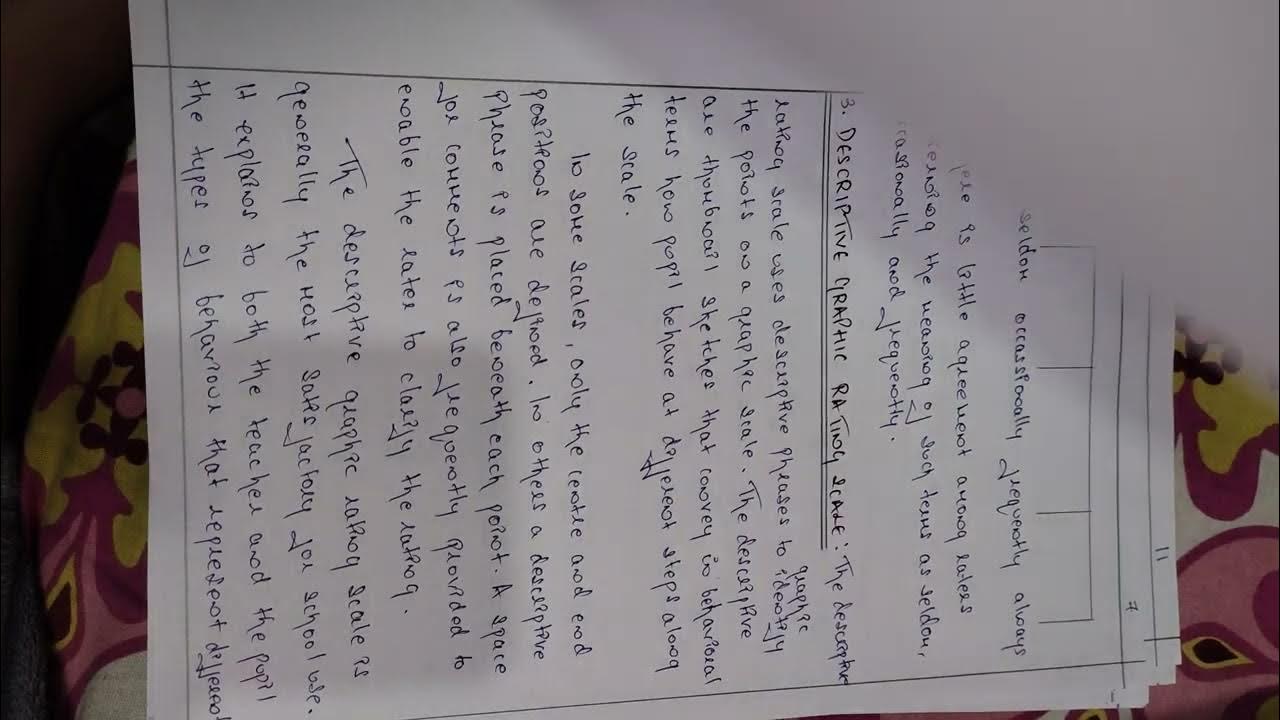 11
7
seldom occassionally frequently always
is little agreement among raters
the meaning of such terms as seldom,
and frequently.
3. DESCRIPTIVE GRAPHIC RATING SCALE: The descriptive
graphic
rating scale uses descriptive phrases to identify
the points on a graphic scale. The descriptive
are thumbnail sketches that convey in behavioral
terms how pupil behave at different steps along
the scale.
In some scales, only the centre and end
positions are defined. In others a descriptive
phrase is placed beneath each point. A space
for comments is also frequently provided to
enable the rater to clarify the rating.
The descriptive graphic rating scale is
generally the most satisfactory for school use.
It explains to both the teacher and the pupil
the types of behaviour that represent different